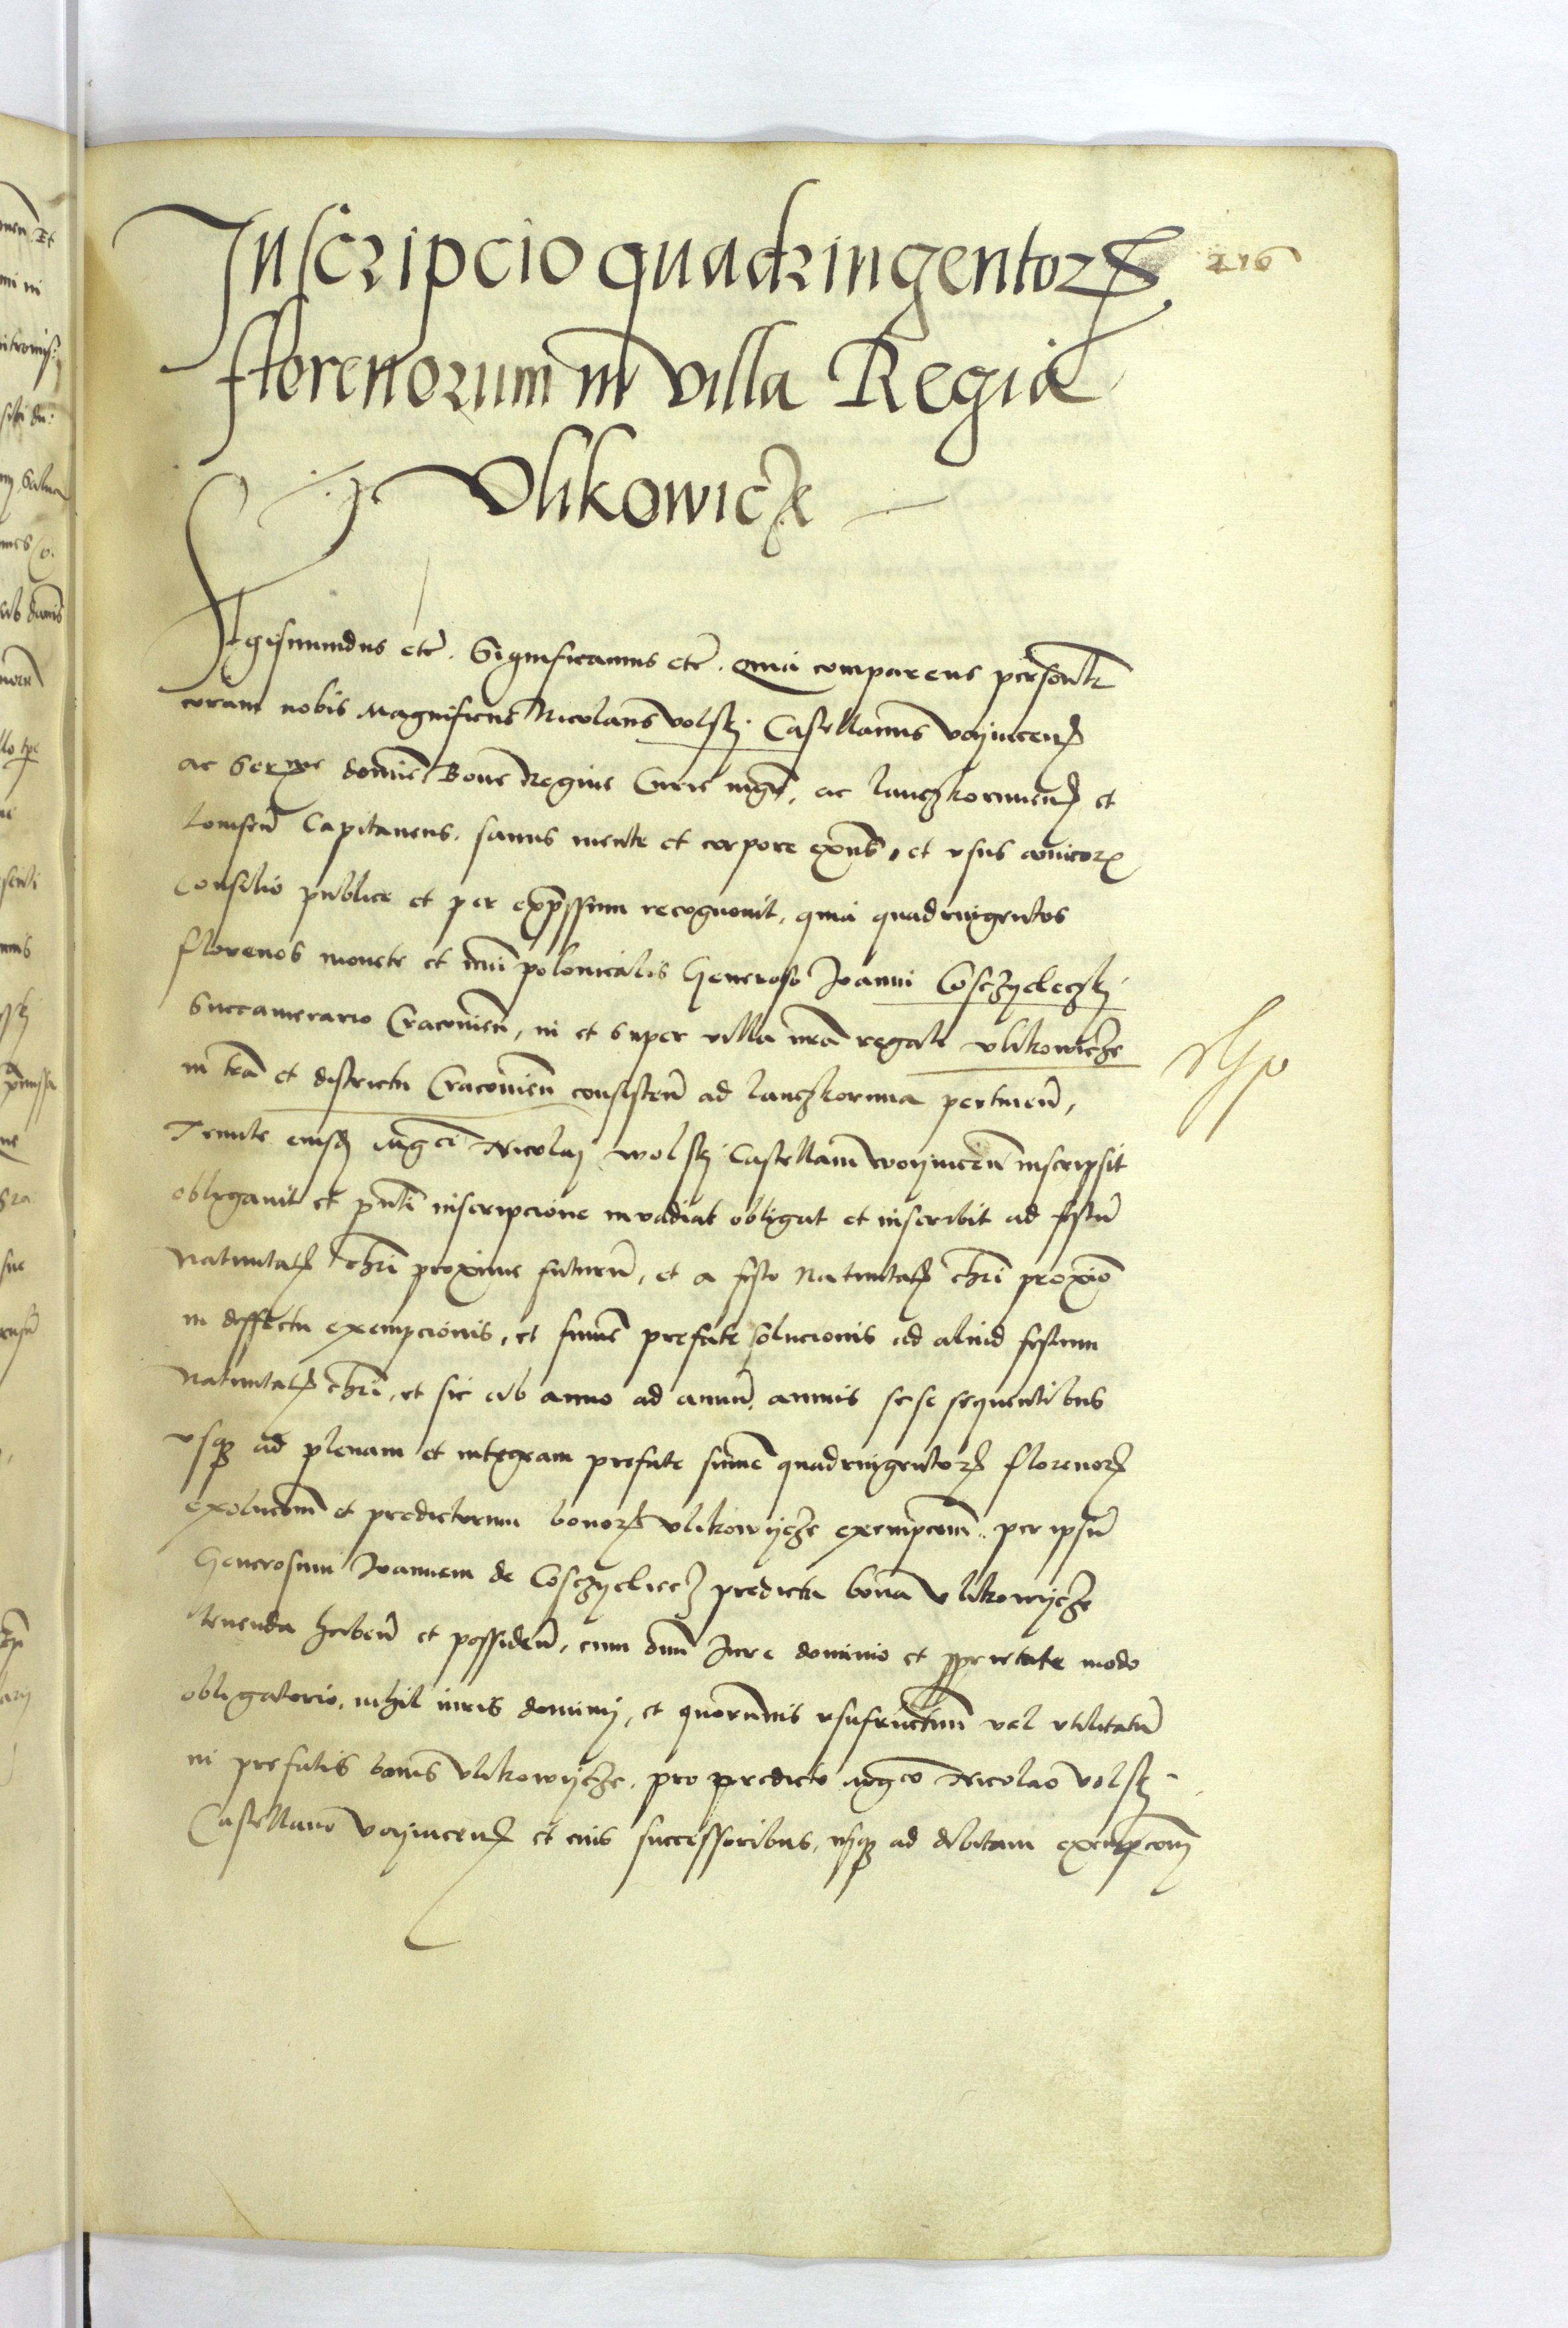 Inscripcio quadringentorꝝ
florenorum in villa Regia
Vlikowicze
216
Sigismundus etc̃. Significamus etc̃. Quia comparens personalr̃
coram nobis Magnificus Nicolaus Volsky Castellanus Voyniceñ
ac Serᵐᵉ domine Bone Regine Curie mgr̃, ac lanczkoruneñ et
lomzeñ Capitaneus, sanus mente et corpore exñs, et vsus amicorꝝ
Consilio publice et per expressum recognouit, quia quadringentos
florenos monete et nũi polonicalis Generoso Joanni Cosczyeleczky
Succamerario Cracouieñ, in et super villa nr̃a regali vlikowicze
in tr̃a et districtu Cracouieñ consisteñ ad lanczkoruna pertineñ,
Tenute eiusdẽ Mgci Nicolaj Wolsky Castellani Woyniceñ inscripsit
obligauit et pñti inscripcione inuadiat obligat et inscribit ad festũ
Natiuitatꝭ chrĩ proxime futurũ, et a festo Natiuitatꝭ chrĩ proximo
in deffectu exempcionis, et summe prefate solucionis ad aliud festum
Natiuitatꝭ chrĩ, et sic ab anno ad annũ, annis sese sequentibus
vsqꝫ ad plenam et integram prefate summe quadringentorꝝ florenorꝝ
exolucom̃ et predictorum bonorꝝ vlikowycze exempcom̃ per ipsũ
Generosum Joannem de Cosczyelecz predicta bona vlikowycze
tenenda habeñ et possideñ, cum omĩ Jure dominio et ꝓprietate modo
obligatorio, nihil iuris dominij, et quorumuis vsufructuum vel vtilitatũ
in prefatis bonis vlikowycze, pro predicto Mgco Nicolao Volsky
Castellano Voyniceñ et eius successoribus, vsqꝫ ad debitam exempcom̃